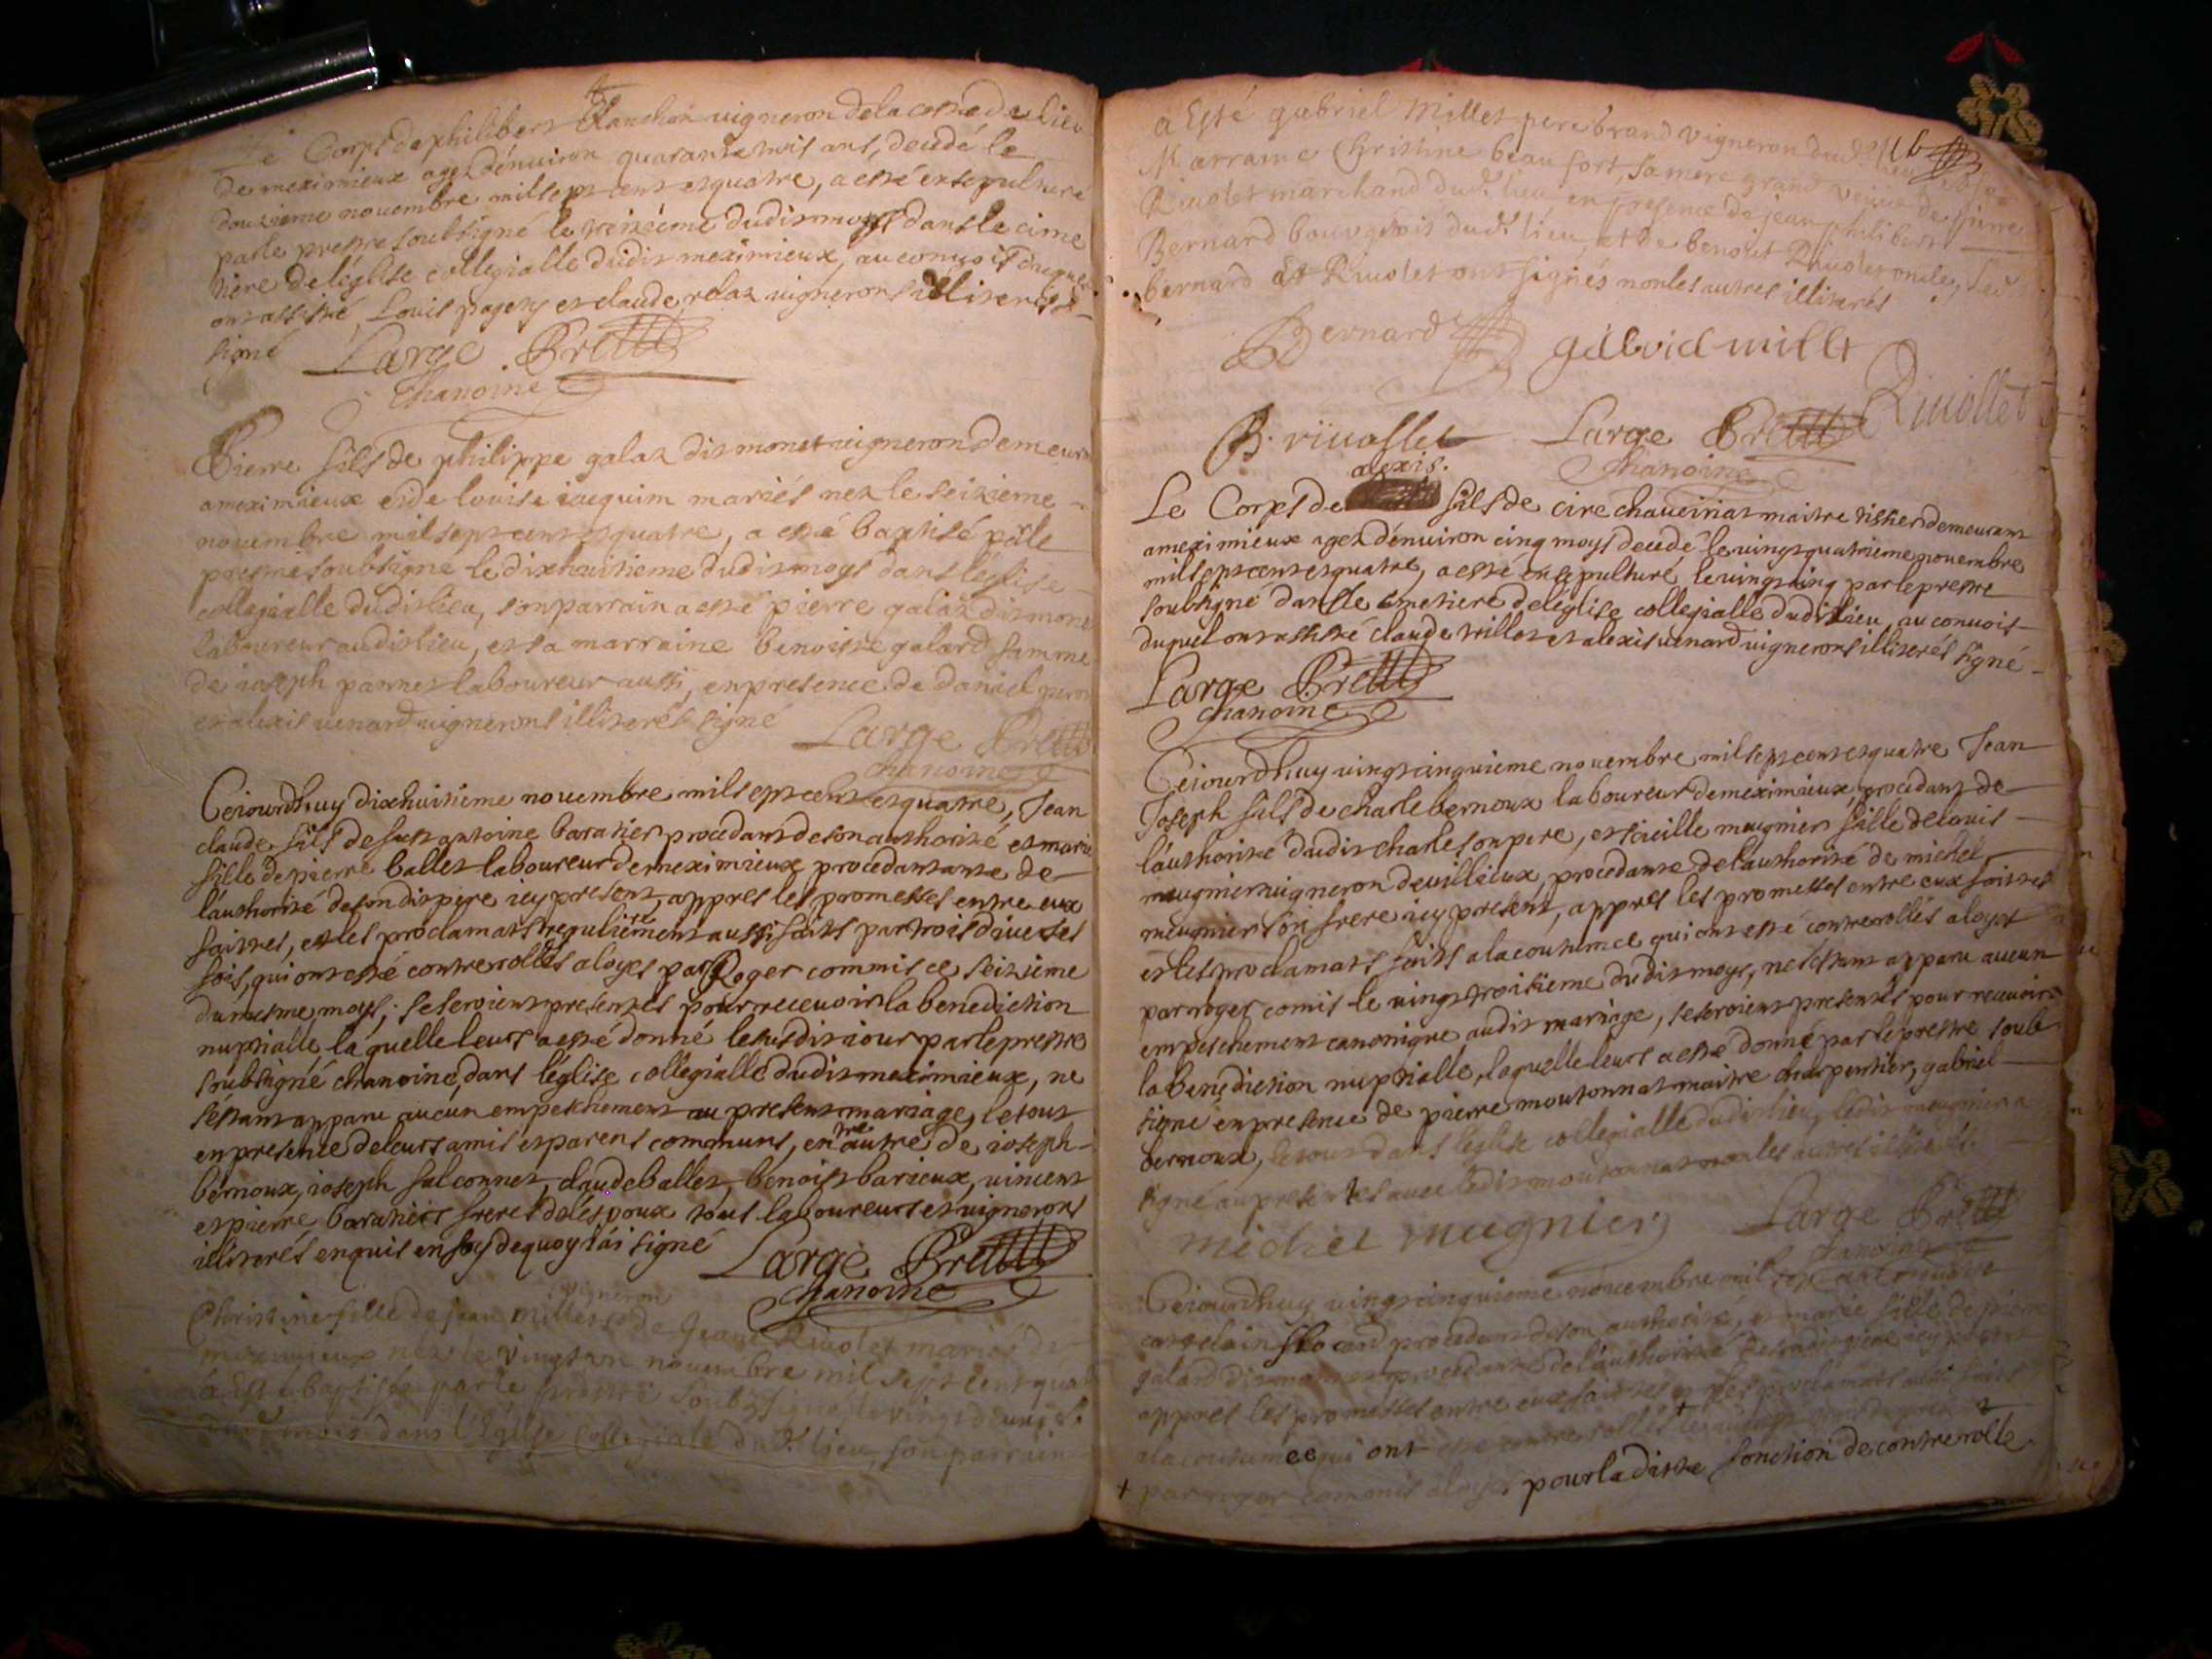 Le Corps de philibert Blanchon vigneron dela coste du lieu
de meximieux agez dénuiron quarante trois ans, decedé le
douzieme nouembre mil sept cent et quatre, a esté ensepulturé
par le prestre soubsigné le treizieme dudit moys dans le cime
tiere de léglise collegialle dudit meximieux, au conuois duquel
ont assisté Louis pagety et claude rolaz vignerons illiterés
signé Large Pretre
Chanoine
Pierre fils de philippe galaz dit monet vigneron demeurant
a meximieux et de louise iacquim mariés nez le seizieme
nouembre mil sept cent et quatre, a esté baptisé par le
prestre soubsigné le dixhuitieme dudit moys dans léglise
collegialle dudit lieu, son parrain a esté pierre galaz dit monet
laboureur audit lieu, et sa marraine benoiste galard famme
de ioseph pannet laboureur aussi, en presence de daniel peron
et alexis uenard vignerons illiterés signé Large Pretre
chanoine
Ceiourdhuy dixhuitieme nouembre mil sept cent et quatre, Jean
claude fils de fut antoine baratier procedant de son authorité et marie
fille de pierre ballet laboureur de meximieux procedantante de
l'authorité de son dit pere icy present, appres les promesses entre eux
faittes, et les proclamats regulierement aussi faits par trois diuerses
fois, qui ont esté contrerollés aloyes par Roger commis ce seizieme
du mesme moys; se seroient presentés pour receuoir la benediction
nuptialle la quelle leurs a esté donné le susdit iour par le prestre
soubsigné chanoine, dans léglise collegialle dudit meximieux, ne
séstant apparu aucun empeschement au present mariage, le tout
en presence de leurs amis et parens communs, en autre de ioseph
bernoux, ioseph falconnet, claude ballet, benoist barieux, uincent
et pierre baratiers freres de lépoux tous laboureurs et uignerons
illiterés enquis en foy de quoy iái signé Large Pretre
chanoine
vigneron
Christine fille de jean millet et de Jeanne Riuolet mariés de
meximieux néz le vingt un nouembre mil sept cent quatre
a esté baptisée par le prestre soubzsigné, le vingt deuxie
dud. mois dans l'Eglise Collegiale dud. lieu, son parrain
a Esté gabriel Millet pere grand vigneron dud. lieu
Marraine Christine beaufort, sa mere grand veuve de pierre
Riuolet marchand dud. lieu en presence de jean philibert
Bernard bourgeois dud. lieu, et de benoist Riuolet oncle, led.
bernard et Riuolet ont signés non les autres illiterés
Bernard gabriel millet
B. riuollet Large Pretre Riuollet
Chanoine
alexis.
Le Corps de fils de cire chaueiriat maitre tissier demeurant
a meximieux agez dénuiron cinq moys decedé le uingt quatrieme nouembre
mil sept cent et quatre, a esté ensepulturé le uingt cinq par le prestre
soubsigné dans le cimetiere de léglise collegialle dudit lieu, au conuois
duquel ont assisté claude trillat et alexis uenard vignerons illiterés signé
Large Pretre
chanoine
Ceiourdhuy uingt cinquieme nouembre mil sept cent et quatre Jean
Joseph fils de charle bernoux laboureur de meximieux procedant de
láuthorité dudit charle son pere, et ceicille meugnier fille de louis
meugnier uigneron de uillieux, procedante de l'authorité de michel
meugnier son frere icy present, appres les promesses entre eux faittes
et les proclamats faits a la coutumee qui ont esté contrerollés aloyes
par roger comis le uingt troisieme dudit moys, ne séstant apparu aucun
empeschement canonique audit mariage, se seroient presentés pour receuoir
la benediction nuptialle, laquelle leurs a esté donné par le prestre soub
signé en presence de pierre moutonnat maitre charpentier, gabriel
bernoux, le tout dans léglise collegialle dudit lieu, ledit meugnier a
signé au presentes auec ledit moutonnat non les autres illiterés.
michel meugnier Large Pretre
chanoine
Ceiourdhuy uingt cinquieme nouembre mil sept cent et quatre
procedant de son authorité, et marie fille de pierre
galard dit procedante de láuthorité de son dit pere icy present
appres les promesses entre eux faittes et les proclamats aussi faits
a la coutumee qui ont esté contrerollés le uingt
+ par roger commis aloyes pour la ditte fonction de contrerolle